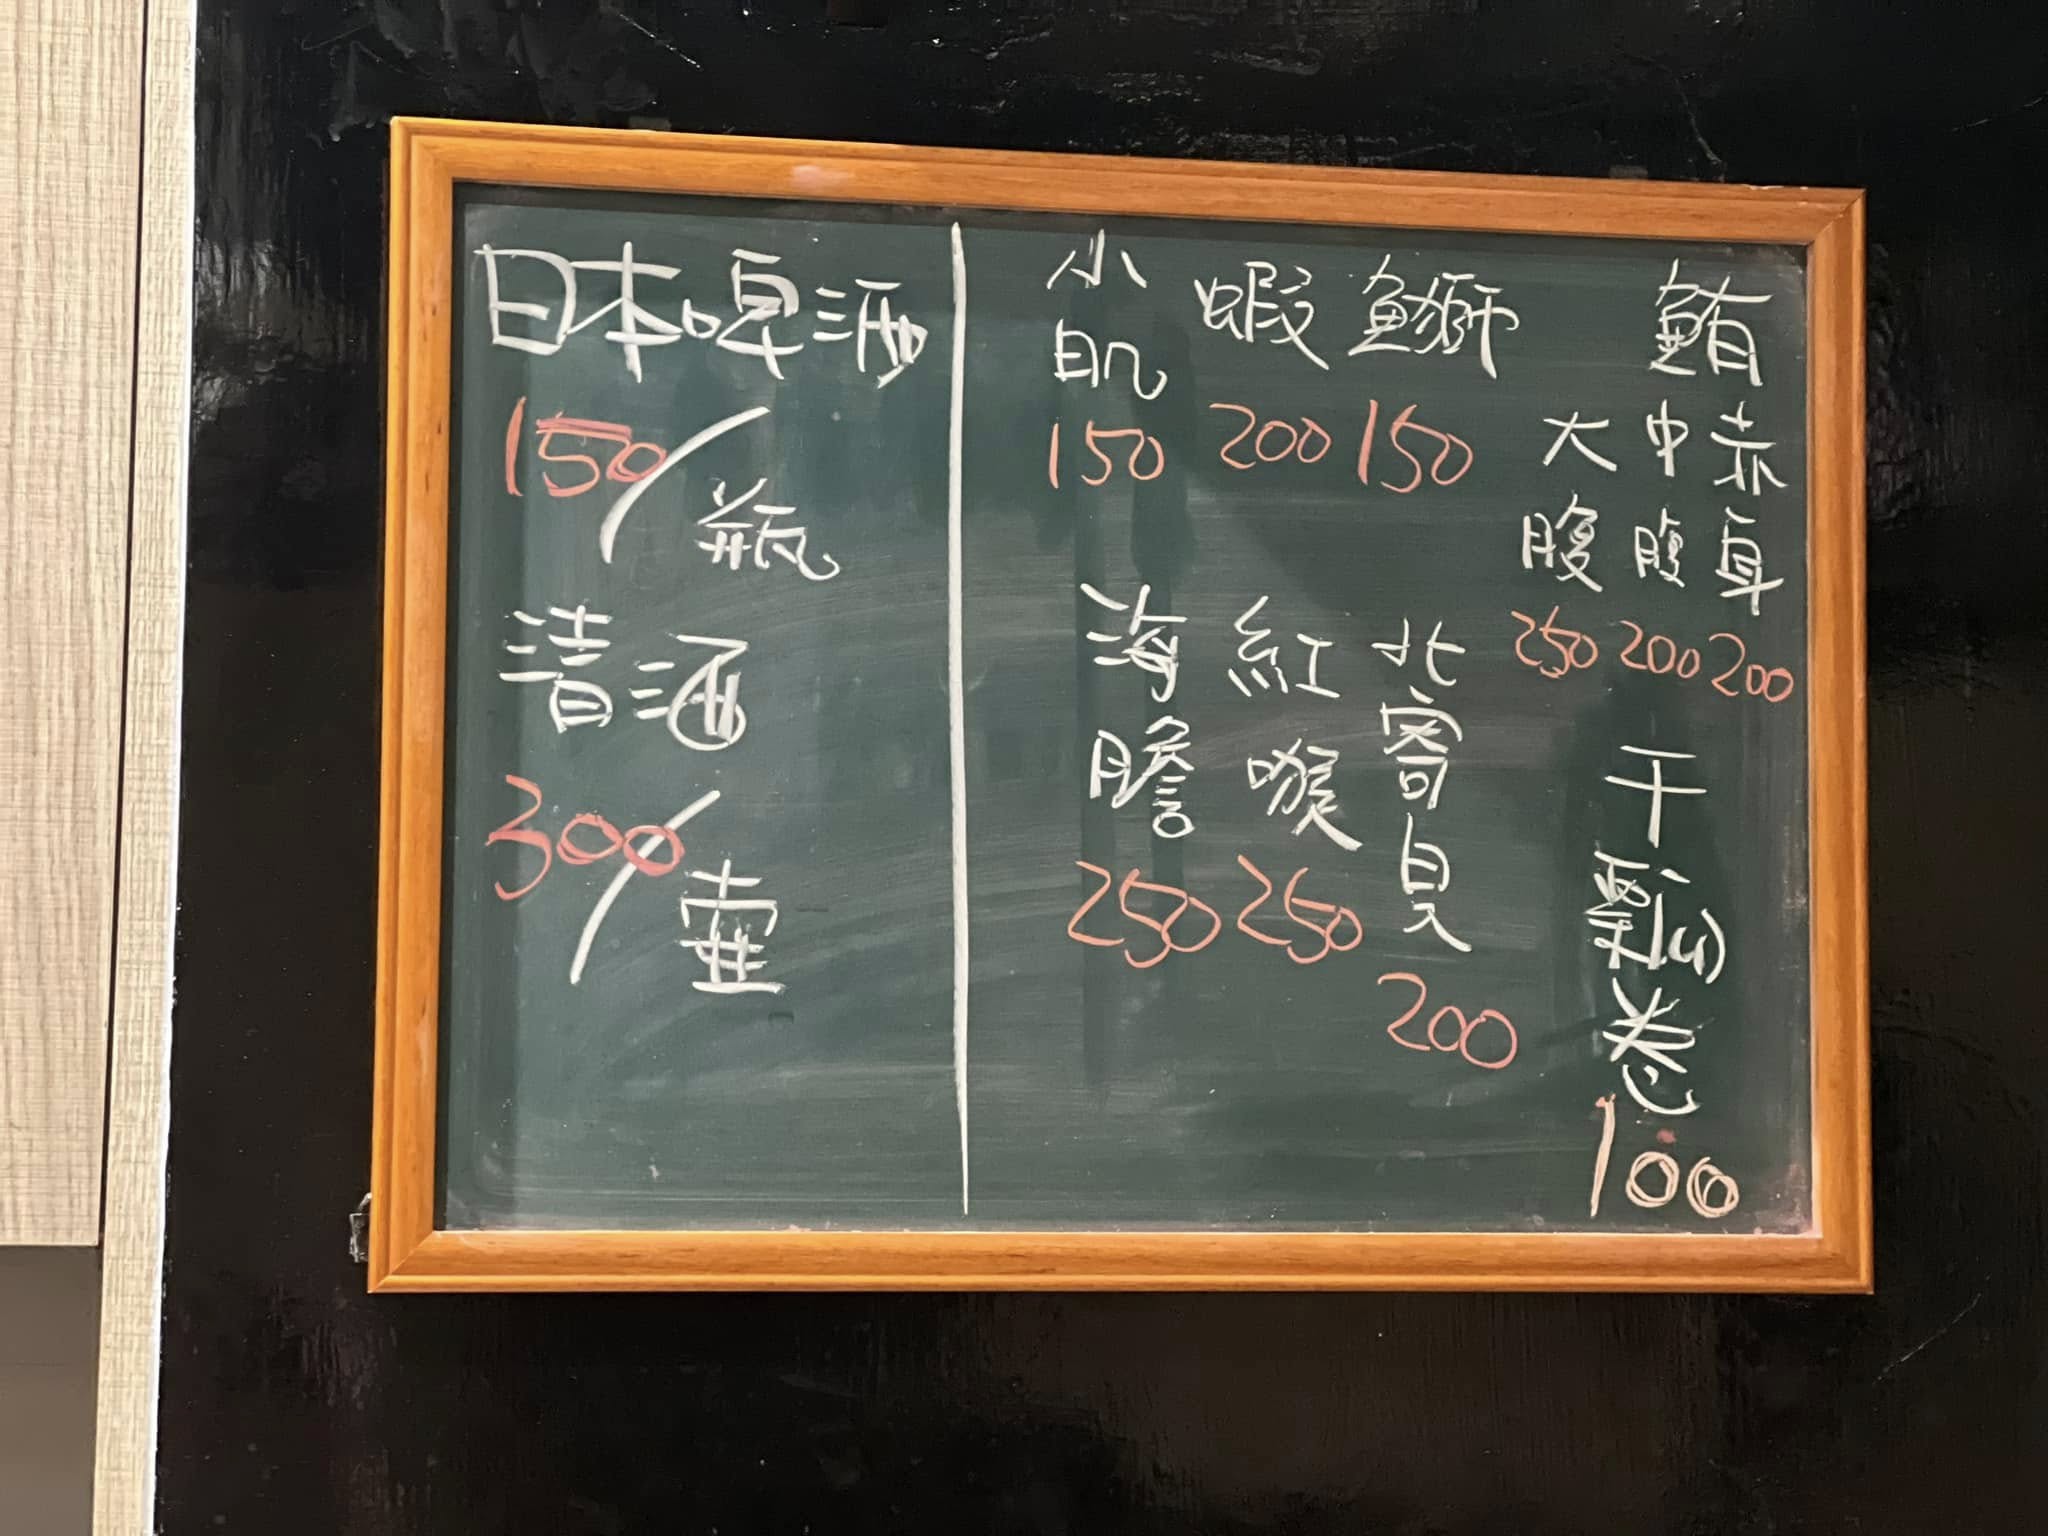 日本啤酒
150/瓶
清酒
300/壷
鮪
赤身
200
中腹
200
大腹
250
干瓢(山)卷
100
鰤
150
蝦
200
小肌
150
北寄貝
200
紅喉
250
海膽
250